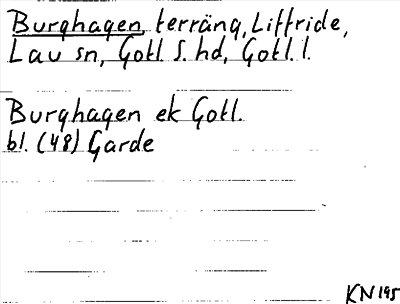 Burghagen, terräng, Liffride,
Lau sn, Gotl. S. hd, Gotl. l.
Burghagen ek Gotl.
bl. (48) Garde
KN 195